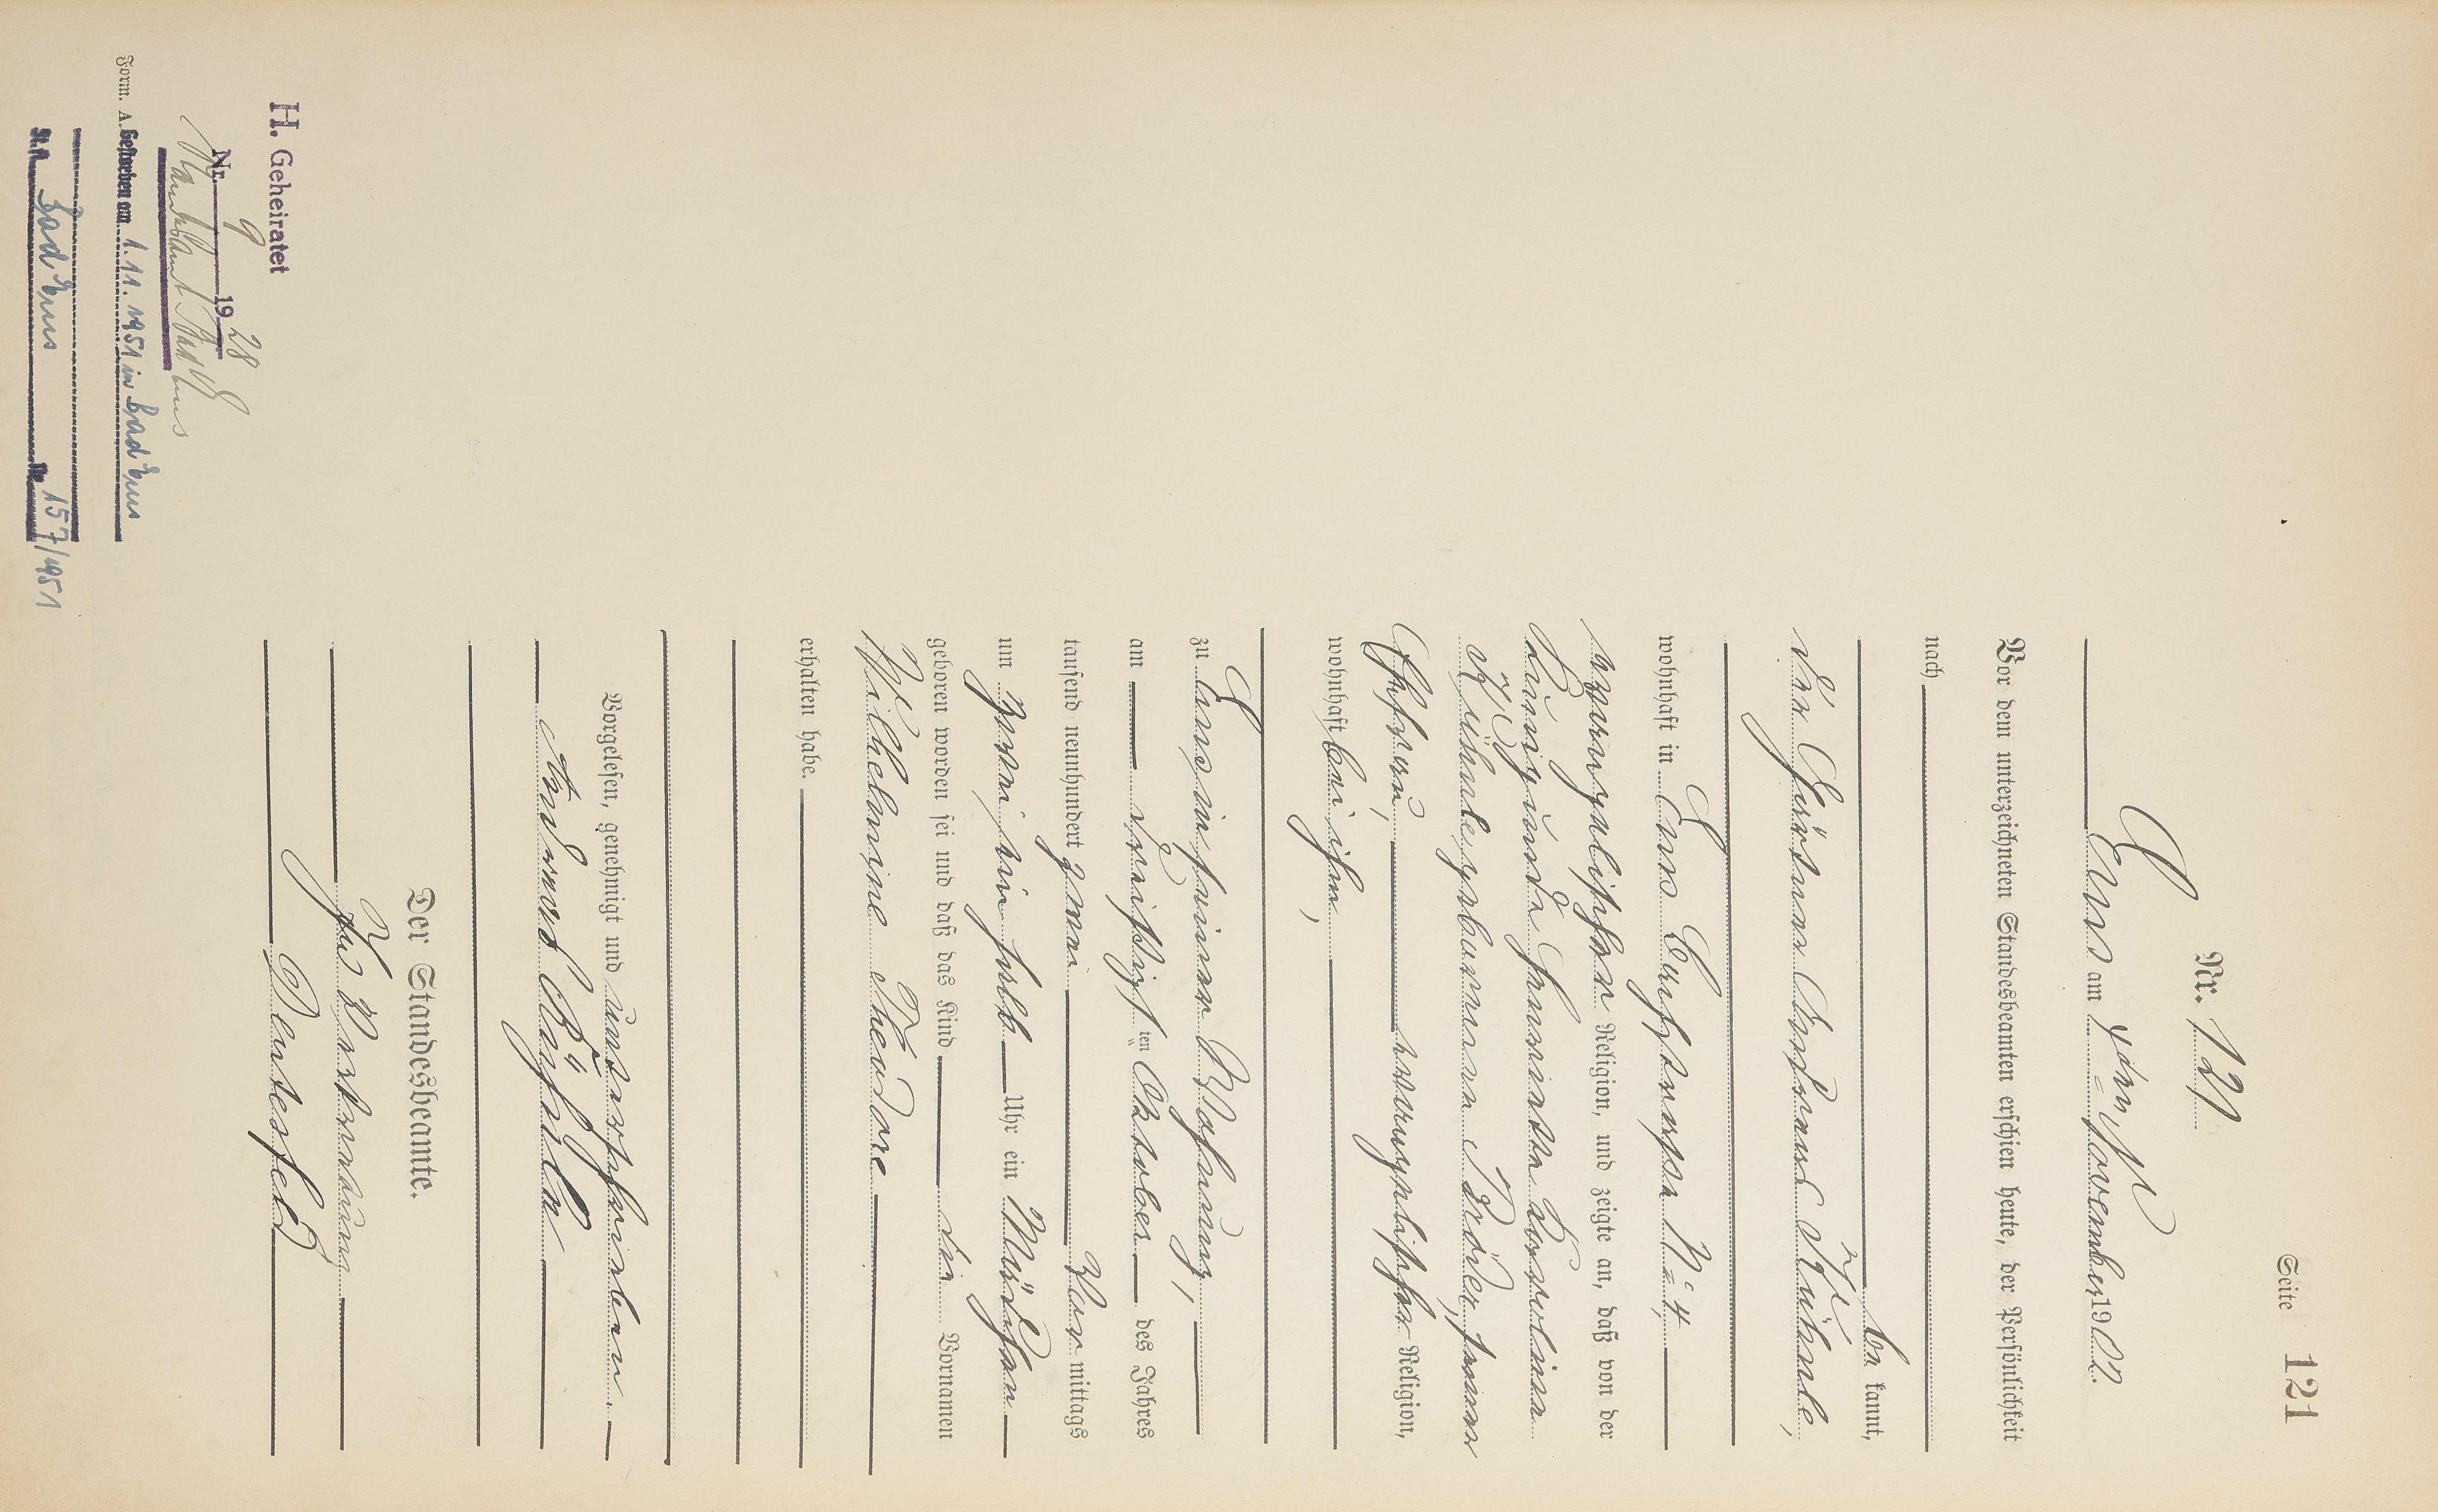 Seite 121
Nr. 121
Ems am 4ten November 1902.
Vor dem unterzeichneten Standesbeamten erschien heute, der Persönlichkeit
nach
be kannt,
der
wohnhaft in Ems N° 4,
evangelischer Religion, und zeigte an, daß von der
geborenen seiner
Ehefrau, evangelischer Religion,
wohnhaft bei ihm,
zu Ems in seiner Wohnung,
am dreißigsten Oktober des Jahres
tausend neunhundert zwei Vor mittags
um zwei ein halb Uhr ein Mädchen
geboren worden sei und daß das Kind die Vornamen
Wilhelmine Theodore
erhalten habe.
Vorgelesen, genehmigt und unterschrieben.
Der Standesbeamte.
In Vertretung
H. Geheiratet
Nr. 9 1928
Standesamt Bad Ems
Form. A. Gestorben am 1.11.1951 in Bad Ems
St.A. Bad Ems Nr. 157/1951